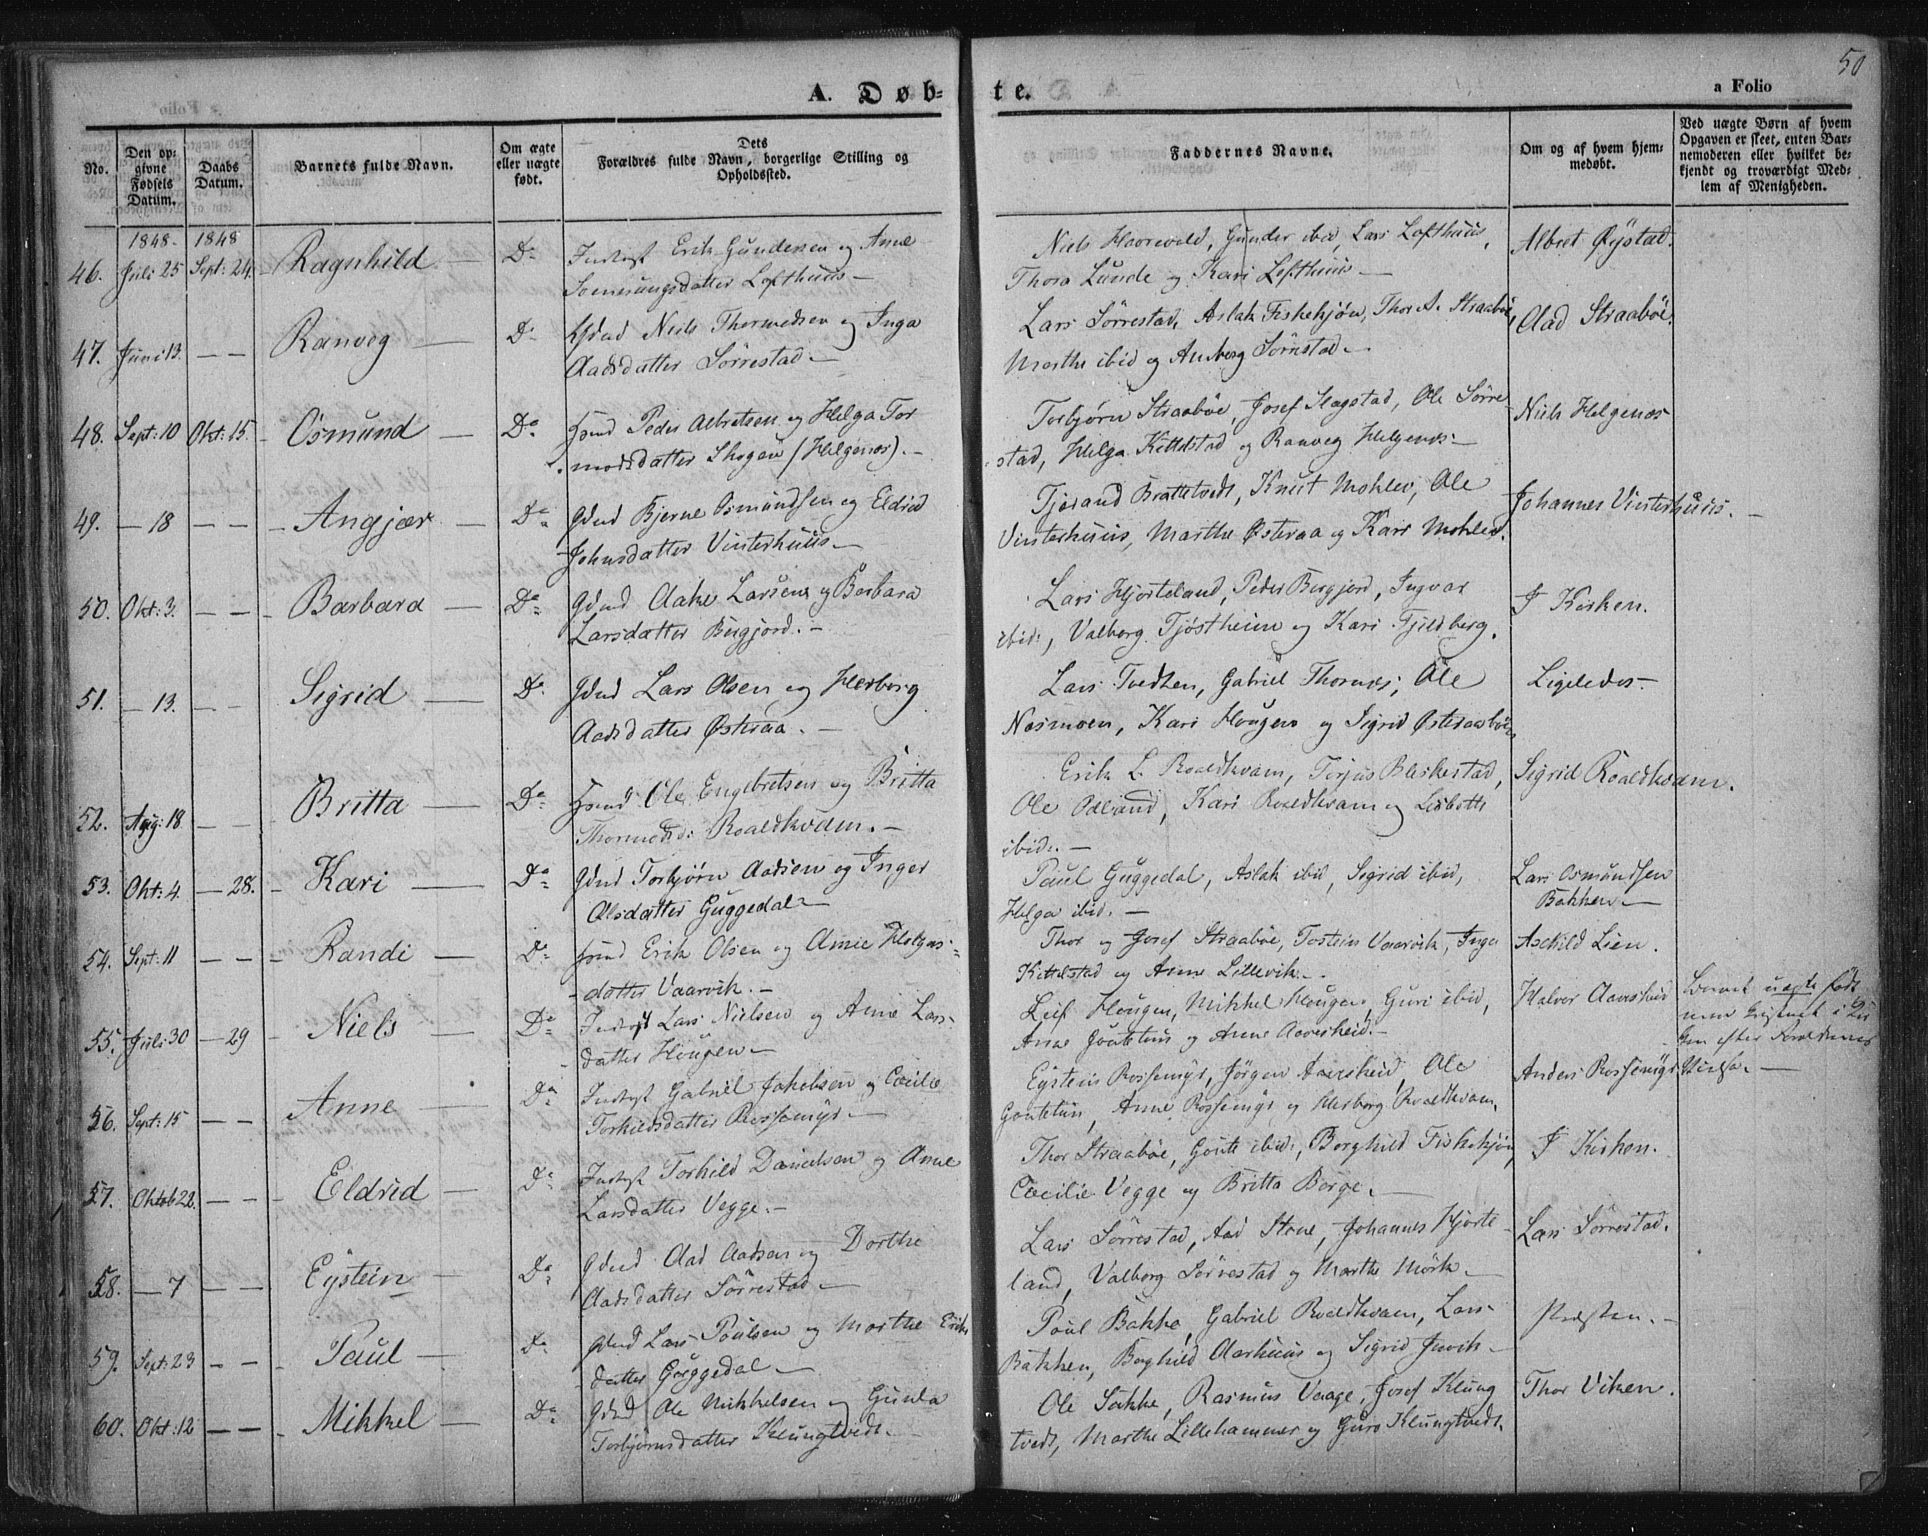 50
A. Døb-
te.
a Folio
No.
Den op-
givne
Fødsels
Datum.
Daabs
Datum.
Barnets fulde Navn.
Om ægte
eller uægte
født.
Dets
Forældres fulde Navn, borgerlige Stilling og
Opholdssted.
Faddernes Navne.
Om og af hvem hjem-
medøbt.
Ved uægte Børn af hvem
Opgaven er skeet, enten Bar-
nemoderen eller hvilket be-
kjendt og troværdigt Med-
lem af Menigheden.
1848. 1848
46. Juli 25 Sept: 24. Ragnhild — Do Indst Erik Gundersen og Anne
datter Lofthuus —
Niels Hoorevold, Gunder ibid, Lars Lofthuus,
Thora Lunde og Kari Lofthuus —
Albret Øystad.
47. Juni 13. — — Ranveg — Do Niels Thormodsen og Inga
Aadsdatter Sørrestad —
Lars Sørrestad, Aslak Fiskekjøn, Thor A. Straabøe,
Marthe ibid og Anberg Sørrestad —
Aad Straabøe.
48. Sept: 10 Okt: 15. Osmund — Do Hsmd Peder Albretsen og Helga Tor
modsdatter Skogen (Helgenæs). —
Torbjørn Straabøe, Josef Slagstad, Ole Sørre-
stad, Helga Kittelstad og Ranveg Helgenæs —
Niels Helgenæs
49. — 18 — — Angjær — Do Gdmd Bjerne Osmundsen og Eldrid
Johnsdatter Vinterhuus —
Tjerand Brattetvedt, Knut Mohlev, Ole
Vinterhuus, Marthe Østeraa og Kari Mohlev.
Johannes Vinterhuus. —
50. Okt: 3. — — Barbara — Do Gdmd Aake Larsen og Barbara
Larsdatter Bergjord. —
Lars Hjorteland, Peder Bergjord, Ingvar
ibid:, Valborg Tjøstheim og Kari Fjeldberg.
I Kirken.
51. — 13. — — Sigrid — Do Gdmd Lars Olsen og Herborg
Aadsdatter Østeraa. —
Lars Tvedten, Gabriel Thornæs, Ole
Næsmoen, Kari Hougen og Sigrid Østeraabøe
Ligeledes. —
52. Aug: 18 — — Britta — Do Hsmd Ole Engebretsen og Britta
Thormodsd: Roaldkvam. —
Erik L. Roaldkvam, Torjus Bleskestad,
Ole Odland, Kari Roaldkvam og Lisbeth
ibid. —
Sigrid Roaldkvam.
53. Okt: 4 — 28. Kari — Do Gdmd Torbjørn Aadsen og Inger
Olsdatter Guggedal —
Paul Guggedal, Aslak ibid, Sigrid ibid,
Helga ibid. —
Lars Osmundsen
Bakken —
54. Sept: 11 — — Randi — Do Hsmd Erik Olsen og Anne Helgas-
datter Vaarvik. —
Thor og Josef Straabøe, Tostein Vaarvik, Inga
Kittelstad og Anne Lillevik —
Askild Lien.
55. Juli 30 — 29 Niels — Do Indst Lars Nielsen og Anne Lars-
datter Hougen —
Leif Hougen, Mikkel Hougen, Guri ibid,
Anne Goutetun og Anne Aaresheid —
Halvor Aaresheid
Barnet uægte født
men i
efter Forældrenes
Vielse. —
56. Sept: 15 Anne — Do Indst Gabriel Jakobsen og Cecilie
Torkildsdatter Rossemyr —
Eystein Rossemyr, Jörgen Aaresheid, Ole
Goutetun, Anne Rossemyr og Herborg Roaldkvam.
Anders Rossemyr
57. Oktob 22. — — Eldrid — Do Indst Torkild Danielsen og Anne
Larsdatter Vegge. —
Thor Straabøe, Goute ibid:, Borghild Fiskekjøn,
Cæcilie Vegge og Britta Børge. —
I Kirken.
58. — 7 — — Eystein — Do Gdmd Aad Aadsen og Dorthe
Aadsdatter Sørrestad —
Lars Sørrestad, Aad Stene, Johannes Hjorte-
land, Valborg Sørrestad og Marthe Mörk —
Lars Sørrestad.
59. Sept: 23 — — Paul — Do Gdmd Lars Poulsen og Marthe Eriks
datter Guggedal —
Poul Bakke, Gabriel Roaldkvam, Lars
Bakken, Borghild Aarhuus og Sigrid Juvik —
Præsten. —
60. Okt: 12 — — Mikkel — Do Gdmd Ole Mikkelsen og Gunla
Torbjørnsdatter Klungtvedt. —
Ole Sukke, Rasmus Vaage, Josef Klung
tvedt, Marthe Lillehammer og Guro Klungtvedt.
Thor Viken.